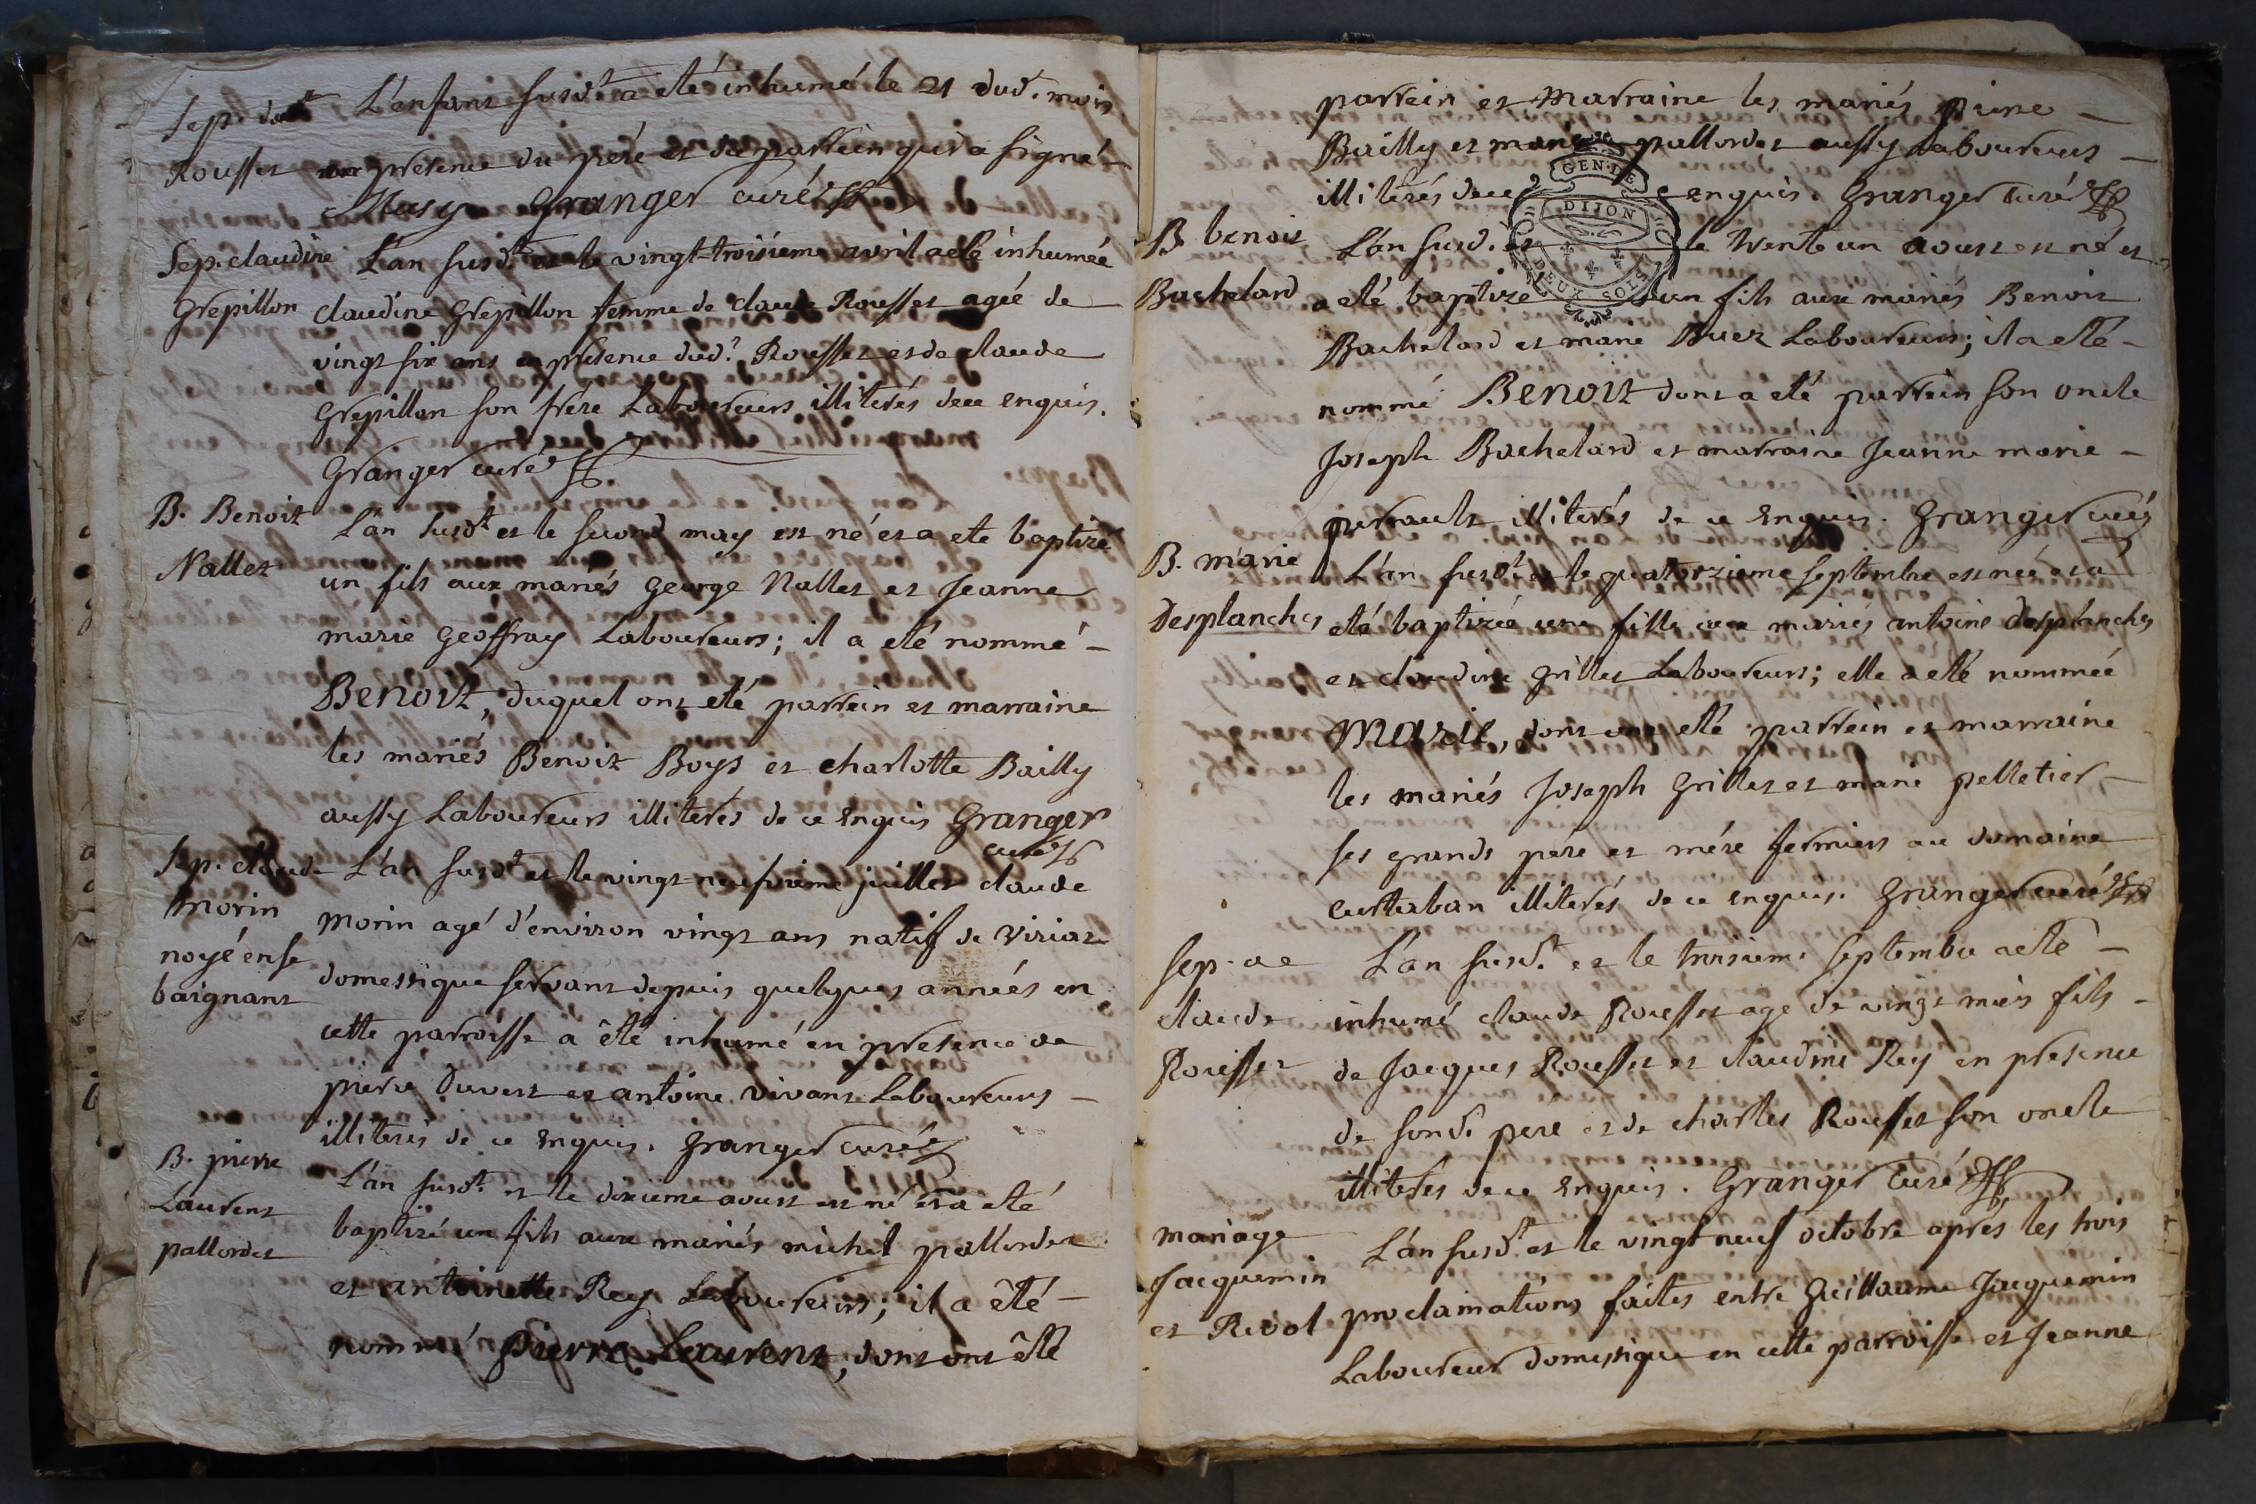 Sep. dud.t
Rousset
L'enfant susd.t a eté inhumé le 21 dud. mois
en presence du pere et du parrein qui a signé
Granger curé
Sep. claudine
Grepillon
L'an susd.t et le vingt-troisieme avril a eté inhumée
claudine Grepillon femme de claude Rousset agée de
vingt six ans en presence dud.t Rousset et de claude
Grepillon son frere Laboureurs illiterés de ce enquis.
Granger curé
B. Benoit
Nallet
L'an susd.t et le second may est né et a eté baptizé
un fils aux mariés george Nallet et Jeanne
marie geoffray Laboureurs; il a eté nommé
BENOIT, duquel ont eté parrein et marraine
les mariés Benoit Boys et charlotte Bailly
aussy Laboureurs illiterés de ce enquis Granger
curé
Sep. claude
morin
noyé en se
baignant
L'an susd.t et le vingt-neufvieme juillet claude
morin agé d'environ vingt ans natif de viriat
domestique servant depuis quelques années en
cette parroisse a êté inhumé en presence de
pierre Duvert et antoine vivant Laboureurs
illiterés de ce enquis. Granger curé
B. pierre
Laurent
pallordet
L'an susd.t et le dixieme aoust est né et a eté
baptizé un fils aux mariés michel pallordet
et antoinette Rey Laboureurs; il a êté
nommé Pierre Laurent, dont ont êté
parrein et Marraine les mariés pierre
Bailly et marie pallordet aussy Laboureurs
illiterés de ce enquis. Granger curé
GEN. DE
DIJON
DEUX SOLS
B. benoit
Bachelard
L'an susd. et le trente un aoust est né et
a eté baptizé un fils aux mariés Benoit
Bachelard et marie Buez Laboureurs; il a eté
nommé BENOIT dont a eté parrein son oncle
Joseph Bachelard et marraine Jeanne marie
perrault illiterés de ce enquis. Granger curé
B. marie
Desplanches
L'an susd.t et le quatorzieme septembre est née et a
eté baptizée une fille aux mariés antoine Desplanches
et claudine grillet Laboureurs; elle a eté nommée
MARIE, dont ont eté parrein et marraine
les mariés Joseph Grillet et marie pelletier
ses grands pere et mére fermiers au domaine
curtaban illiterés de ce enquis. Granger curé
Sep. de
claude
Rousset
L'an susd.t et le troisieme septembre a eté
inhumé claude Rousset agé de vingt mois fils
de Jacques Rousset et claudine Rey en presence
de sond. pere et de charles Rousset son oncle
illiterés de ce enquis. Granger curé
mariage
Jacquemin
et Rivol
L'an susd.t et le vingt neuf octobre aprés les trois
proclamations faites entre Guillaume Jacquemin
Laboureur domestique en cette parroisse et Jeanne